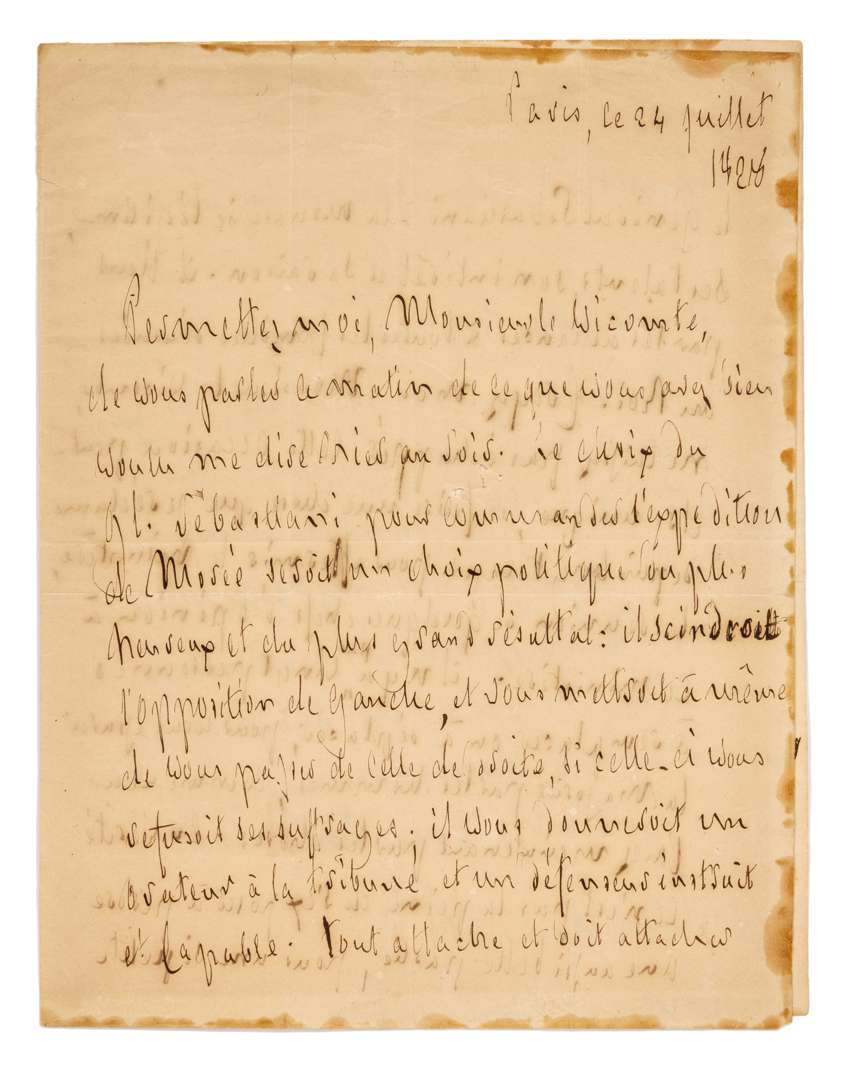 Paris, le 24 Juillet
1828
Permettez moi, Monsieur le Vicomte,
de vous parler ce matin de ce que vous avez bien
voulu me dire hier au soir. Le choix du
gl. Sébastiani pour commander l'expédition
de Morée seroit un choix politique du plus
heureux et du plus grand résultat: il scindroit
l'opposition de Gauche, et vous mettroit à même
de vous passer de celle de droite, si celle-ci vous
refusoit ses suffrages; il vous donneroit un
orateur à la tribune, et un défenseur instruit
et capable. Tout attache et doit attacher